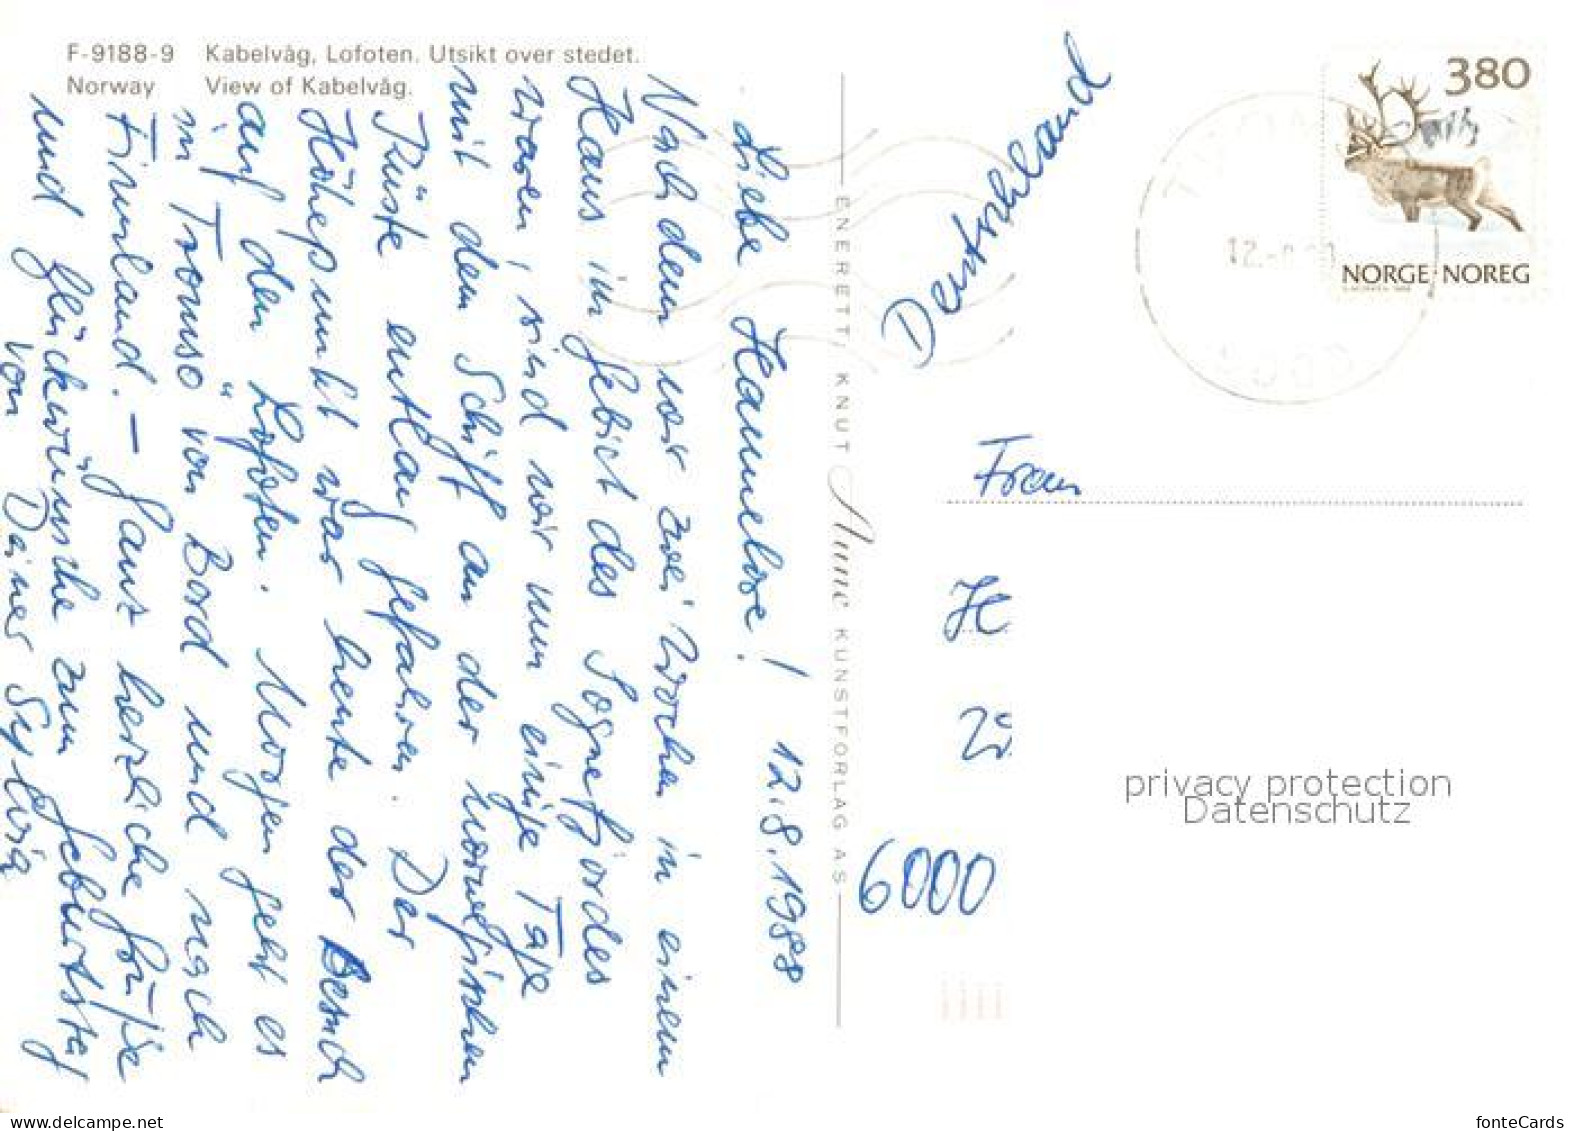 F-9188-9 Kabelvåg, Lofoten. Utsikt over stedet.
Norway View of Kabelvåg.
Liebe Hannelose! 12.8.1988
Nachdem wir zwei Wochen in einem
Haus im Gebiet des Sognefjordes
waren, sind wir nun einige Tage
mit dem Schiff an der norwegischen
Küste entlang gefahren. Der
Höhepunkt war heute der Besuch
auf den Lofoten. Morgen geht es
in Tromsö von Bord und nach
Finnland. – Ganz herzliche Grüße
und Glückwünsche zum Geburtstag
von Deiner Sylvia
ENERETT, KNUT Aune KUNSTFORLAG AS
380
NORGE·NOREG
Deutschland
Frau
H
6000
privacy protection
Datenschutz
www.delcampe.net
fonteCards